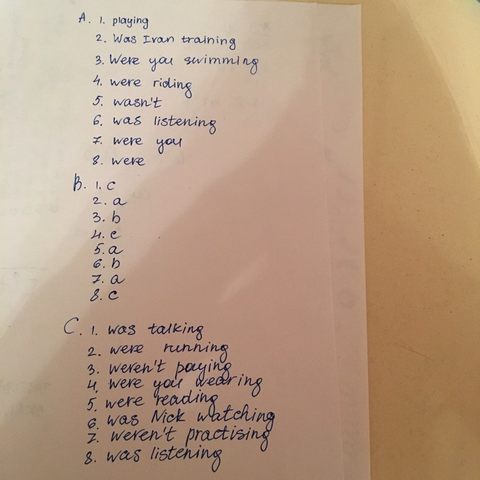 A. 1. playing
2. Was Ivan training
3. Were you swimming
4. were riding
5. wasn't
6. was listening
7. were you
8. were
B. 1. c
2. a
3. b
4. c
5. a
6. b
7. a
8. c
C. 1. was talking
2. were running
3. weren't paying
4. were you wearing
5. were reading
6. was Nick watching
7. weren't practising
8. was listening